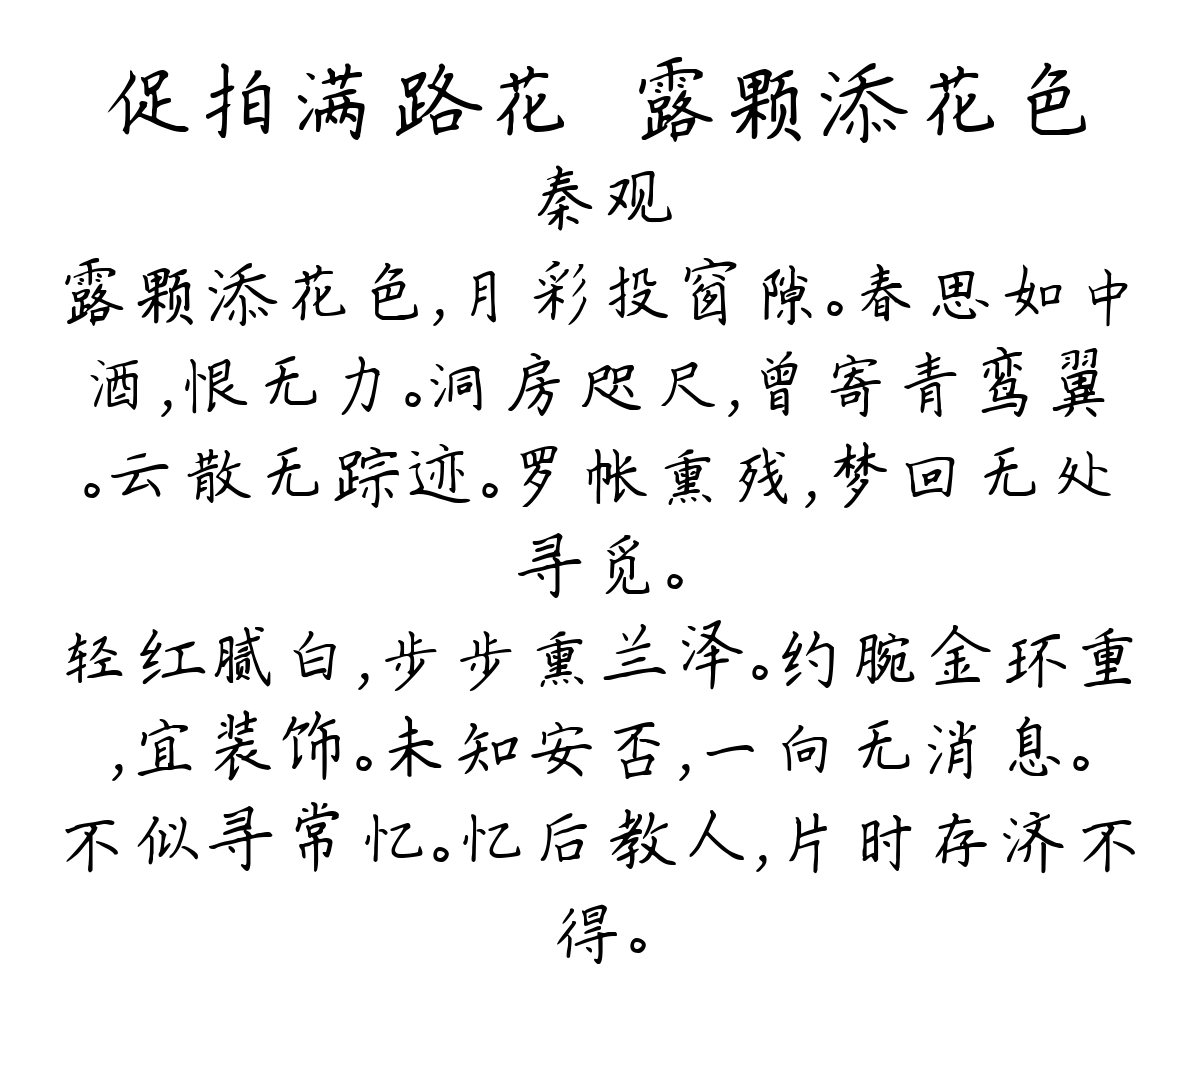 促拍满路花 露颗添花色
秦观
露颗添花色,月彩投窗隙。春思如中
酒,恨无力。洞房咫尺,曾寄青鸾翼
。云散无踪迹。罗帐熏残,梦回无处
寻觅。
轻红腻白,步步熏兰泽。约腕金环重
,宜装饰。未知安否,一向无消息。
不似寻常忆。忆后教人,片时存济不
得。